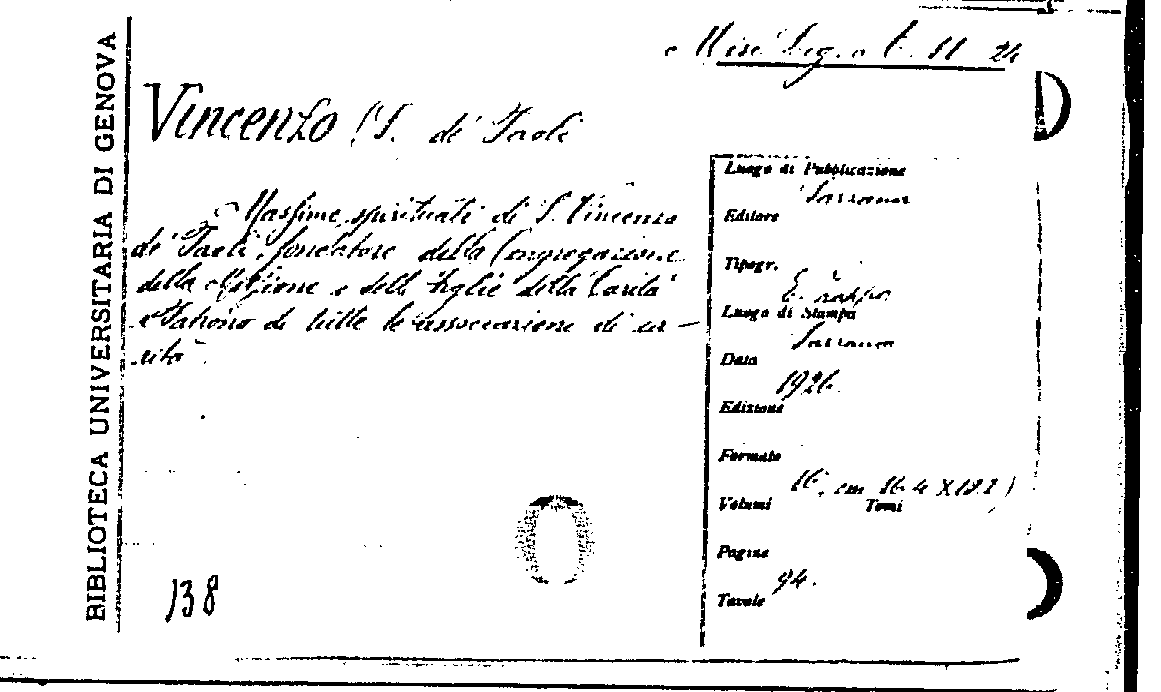 BIBLIOTECA UNIVERSITARIA DI GENOVA
Misc. Leg. A t. 11 24
Vincenzo (S. de' Paoli
Massime spirituali di S. Vincenzo
de' Paoli, fondatore della Congregazione
della Missione e delle figlie della Carità
Patrono di tutte le associazioni di ca-
rità.
138
Luogo di Pubblicazione
Sarzana
Editore
Tipogr.
E.
Luogo di Stampa
Sarzana
Data
1926
Edizione
Formato
16°, cm 16.4 X
Volumi Tomi
Pagine
94.
Tavole